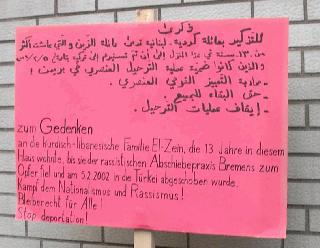 ذكرى
للتذكير بعائلة كردية - لبنانية تدعى عائلة الزين والتي عاشت أكثر
من ١٣ سنة في هذا المنزل إلى أن تم تسفيرهم إلى تركيا بتاريخ
والذين كانوا ضحية عملية الترحيل العنصري في بريمن
- محاربة التمييز القومي العنصري.
- حق البقاء للجميع.
- إيقاف عمليات الترحيل.
zum Gedenken
an die kurdisch-libanesische Familie El-Zein, die 13 Jahre in diesem
Haus wohnte, bis sie der rassistischen Abschiebepraxis Bremens zum
Opfer fiel und am 5.2.2002 in die Türkei abgeschoben wurde.
Kampf dem Nationalismus und Rassismus!
Bleiberecht für Alle!
Stop deportation!